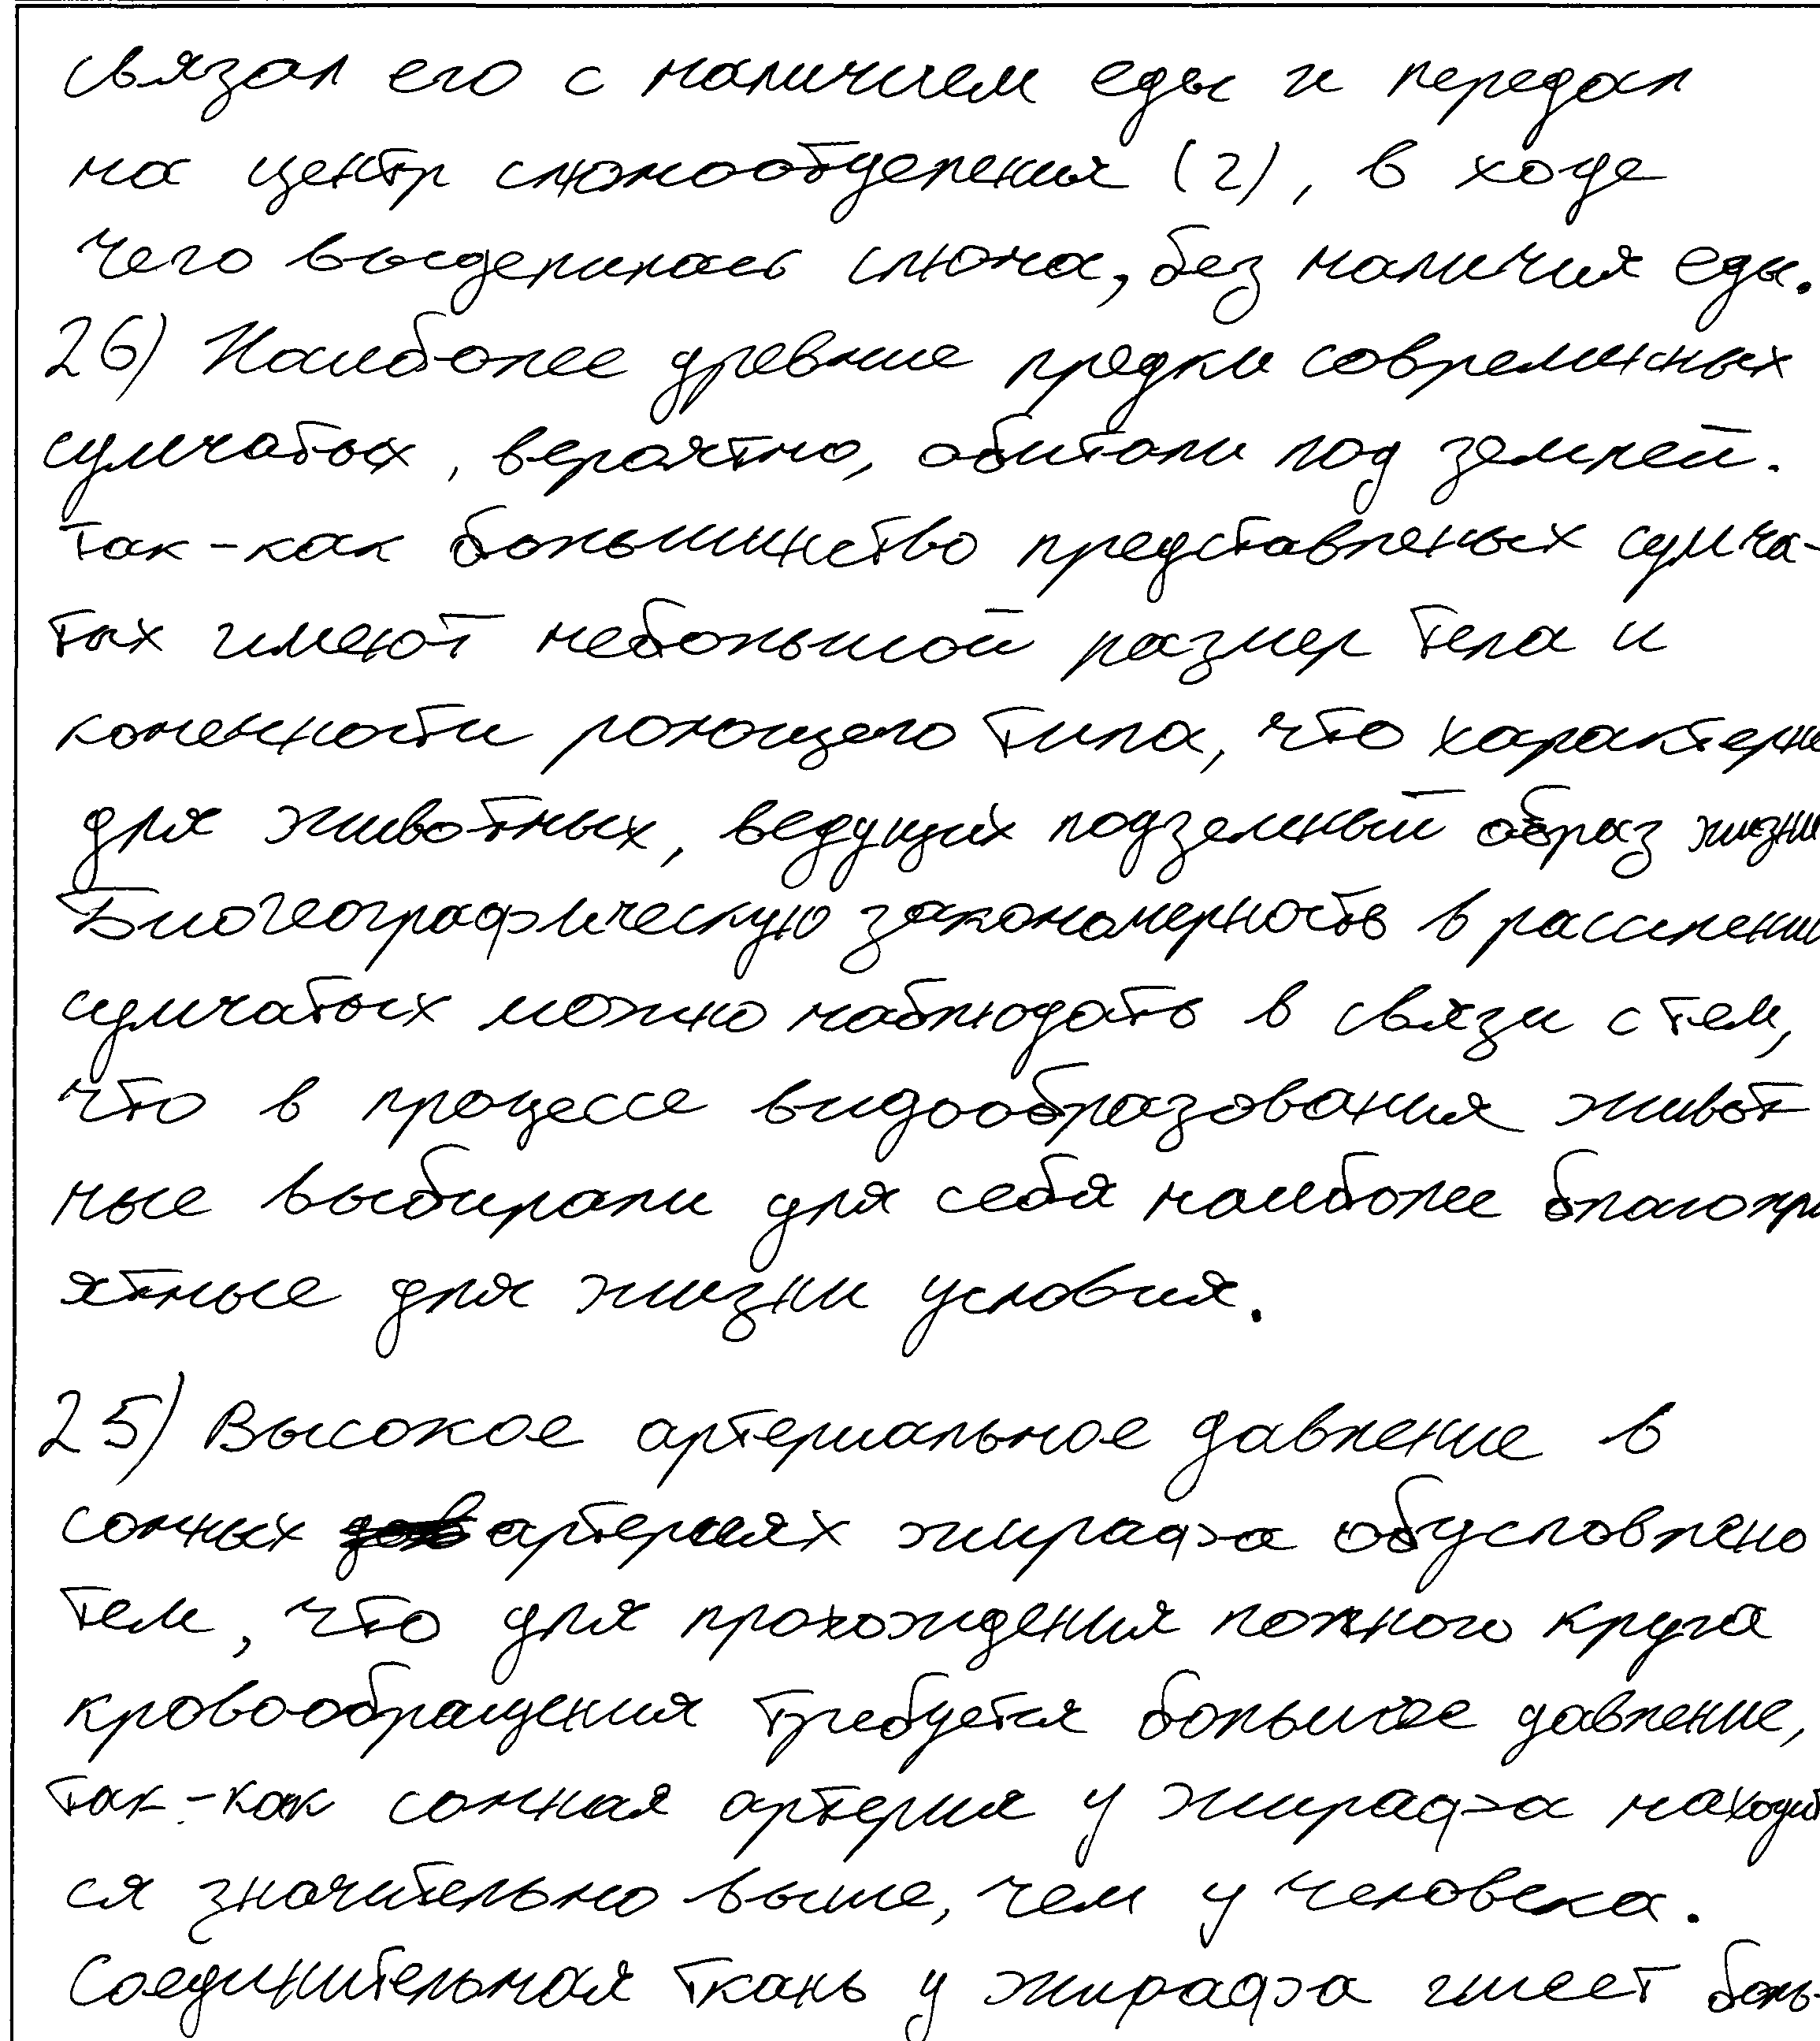 связал его с наличием еды и передал
на центр слюноотделения (2), в ходе
чего выделилась слюна, без наличия еды.
26) Наиболее древние предки современных
сумчатых, вероятно, обитали под землей.
так-как большинство представленых сумча-
тых имеют небольшой размер тела и
конечности роющего типа, что характерно
для животных, ведущих подземный образ жизни
Биогеографическую закономерность в расселении
сумчатых можно наблюдать в связи с тем,
что в процессе видообразования живот
ные выбирали для себя наиболее благопри
ятные для жизни условия.
25) Высокое артериальное давление в
сонных артериях жирафа обусловлено
тем, что для прохождения полного круга
кровообращения требуется большое давление,
так-как сонная артерия у жирафа находит
ся значительно выше, чем у человека.
Соединительная ткань у жирафа имеет боль-